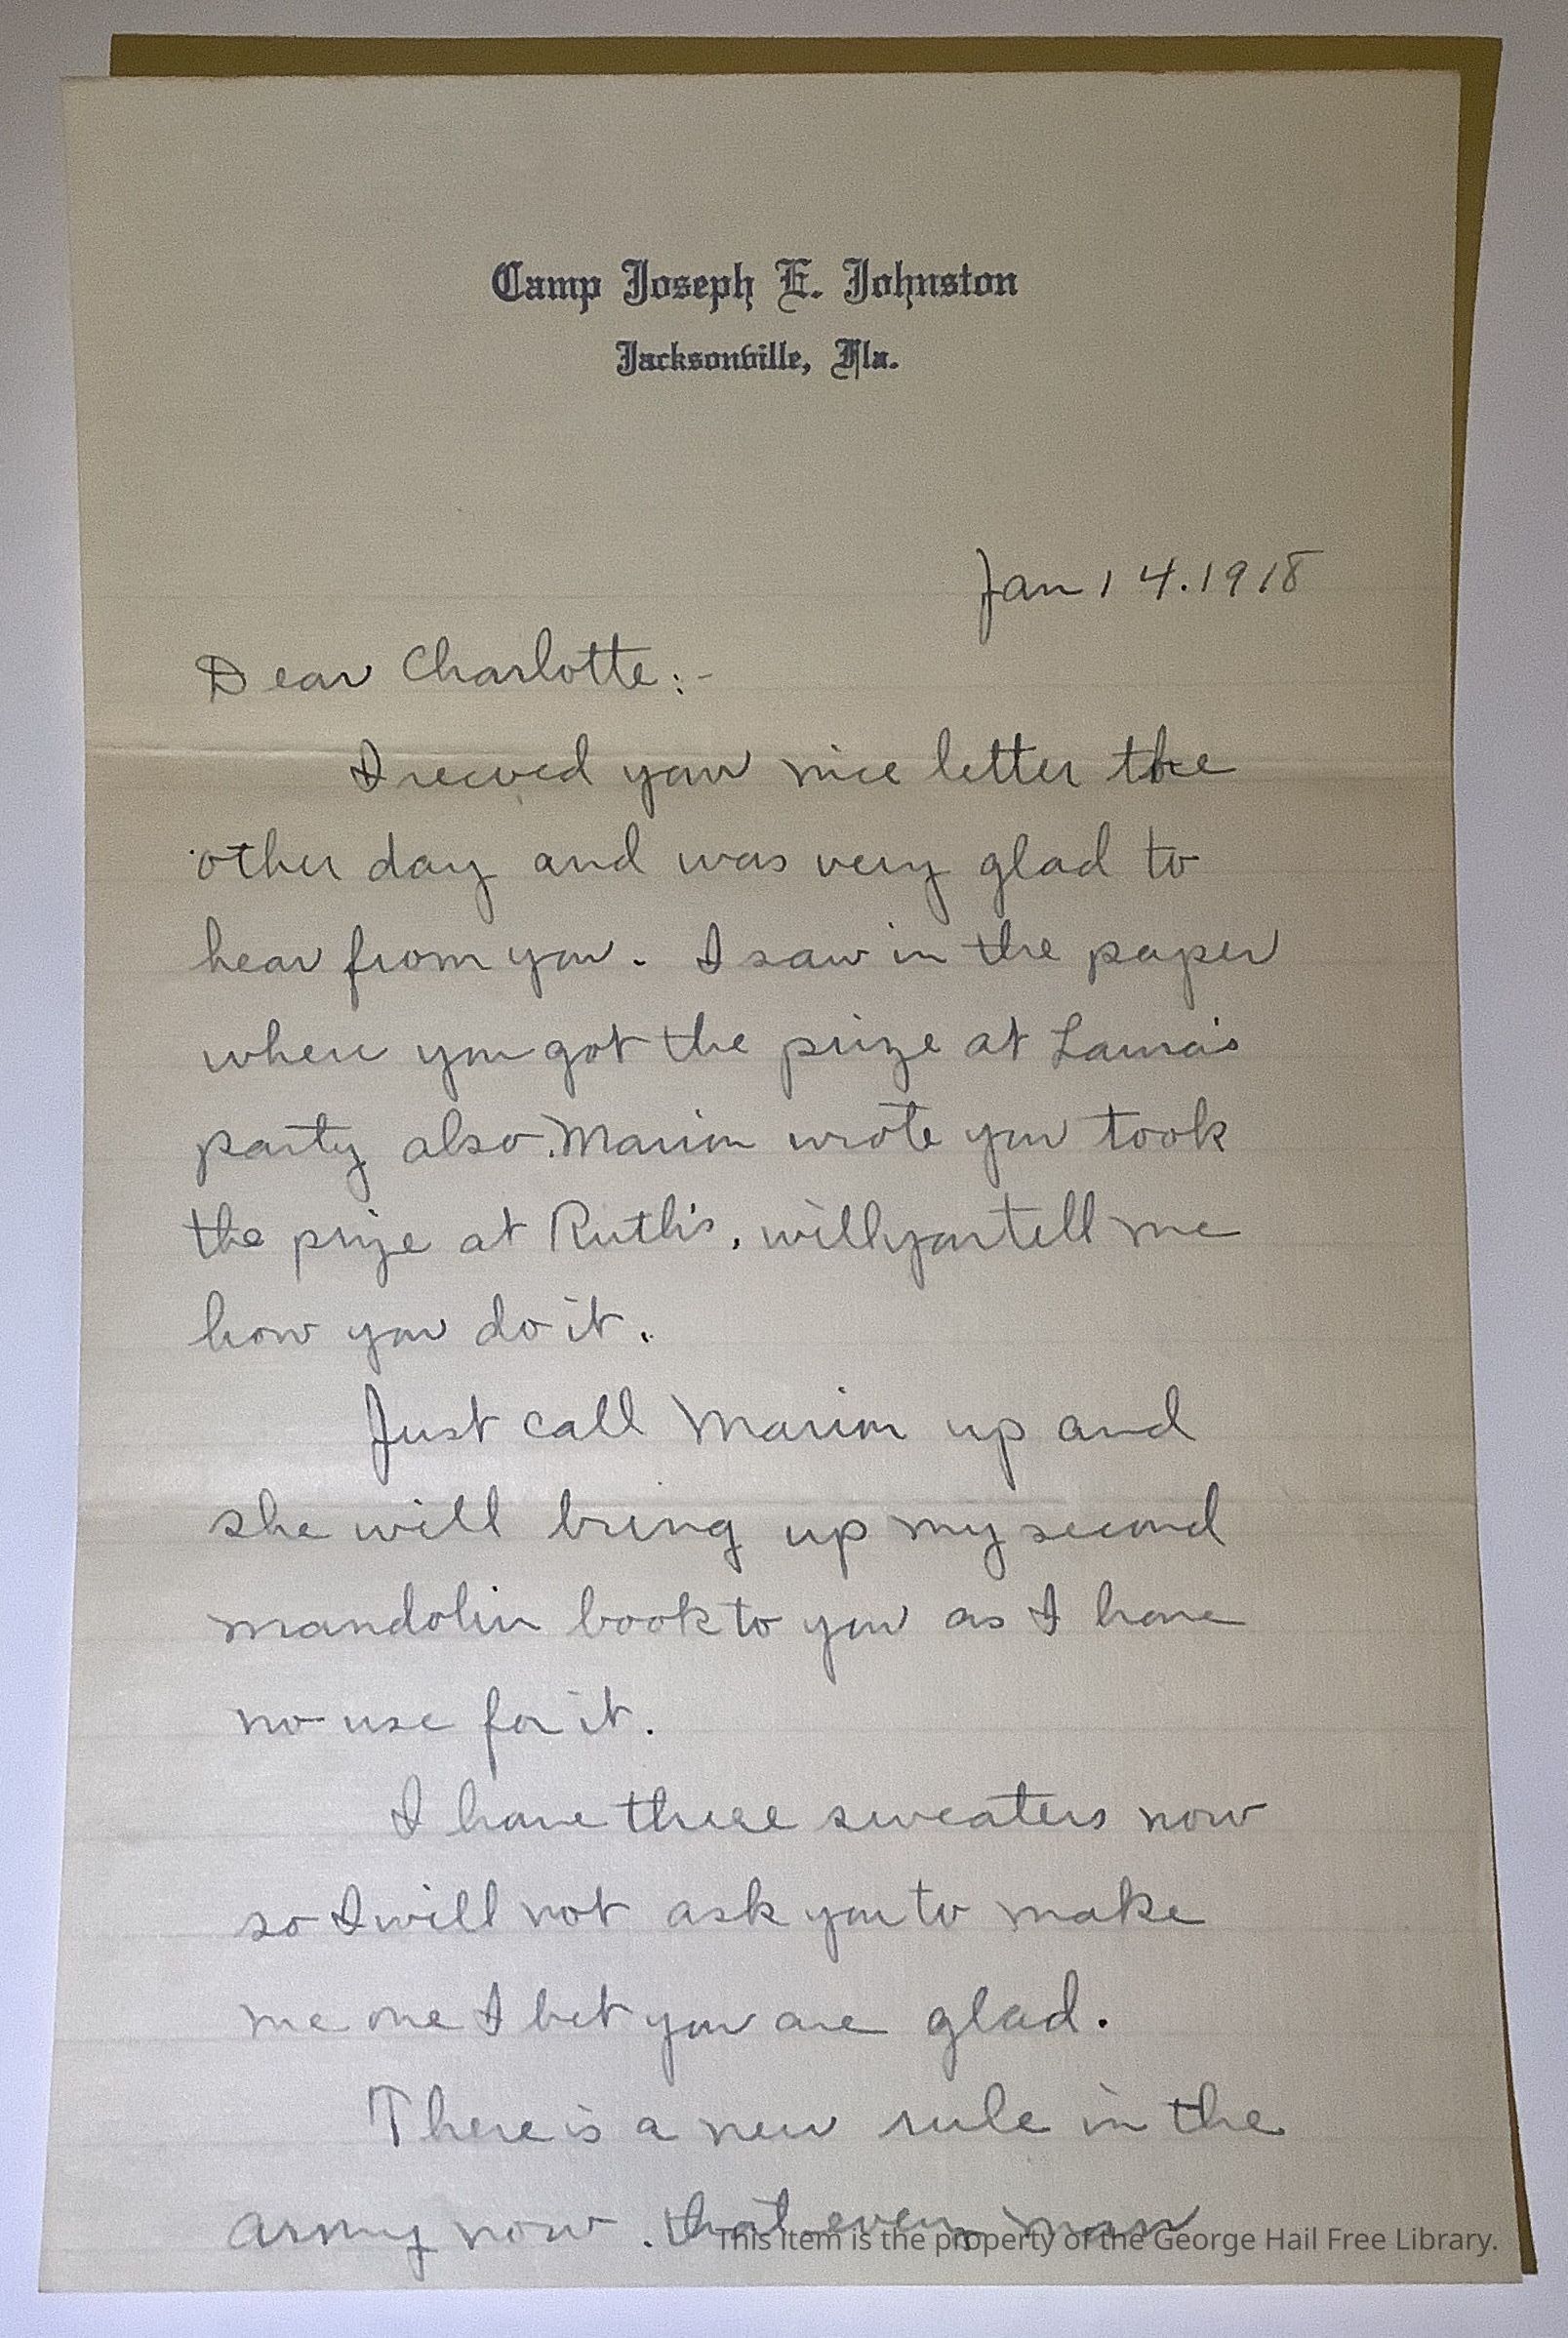 Camp Joseph E. Johnston
Jacksonville, Fla.
Jan 14. 1918
Dear Charlotte:-
I recived your nice letter the
other day and was very glad to
hear from you. I saw in the paper
where you got the prize at Laura's
party also. Marion wrote you took
the prize at Ruth's, will you tell me
how you do it.
Just call Marion up and
she will bring up my second
mandolin book to you as I have
no use for it.
I have three sweaters now
so I will not ask you to make
me one I bet you are glad.
There is a new rule in the
army now. that every man
This item is the property of the George Hail Free Library.